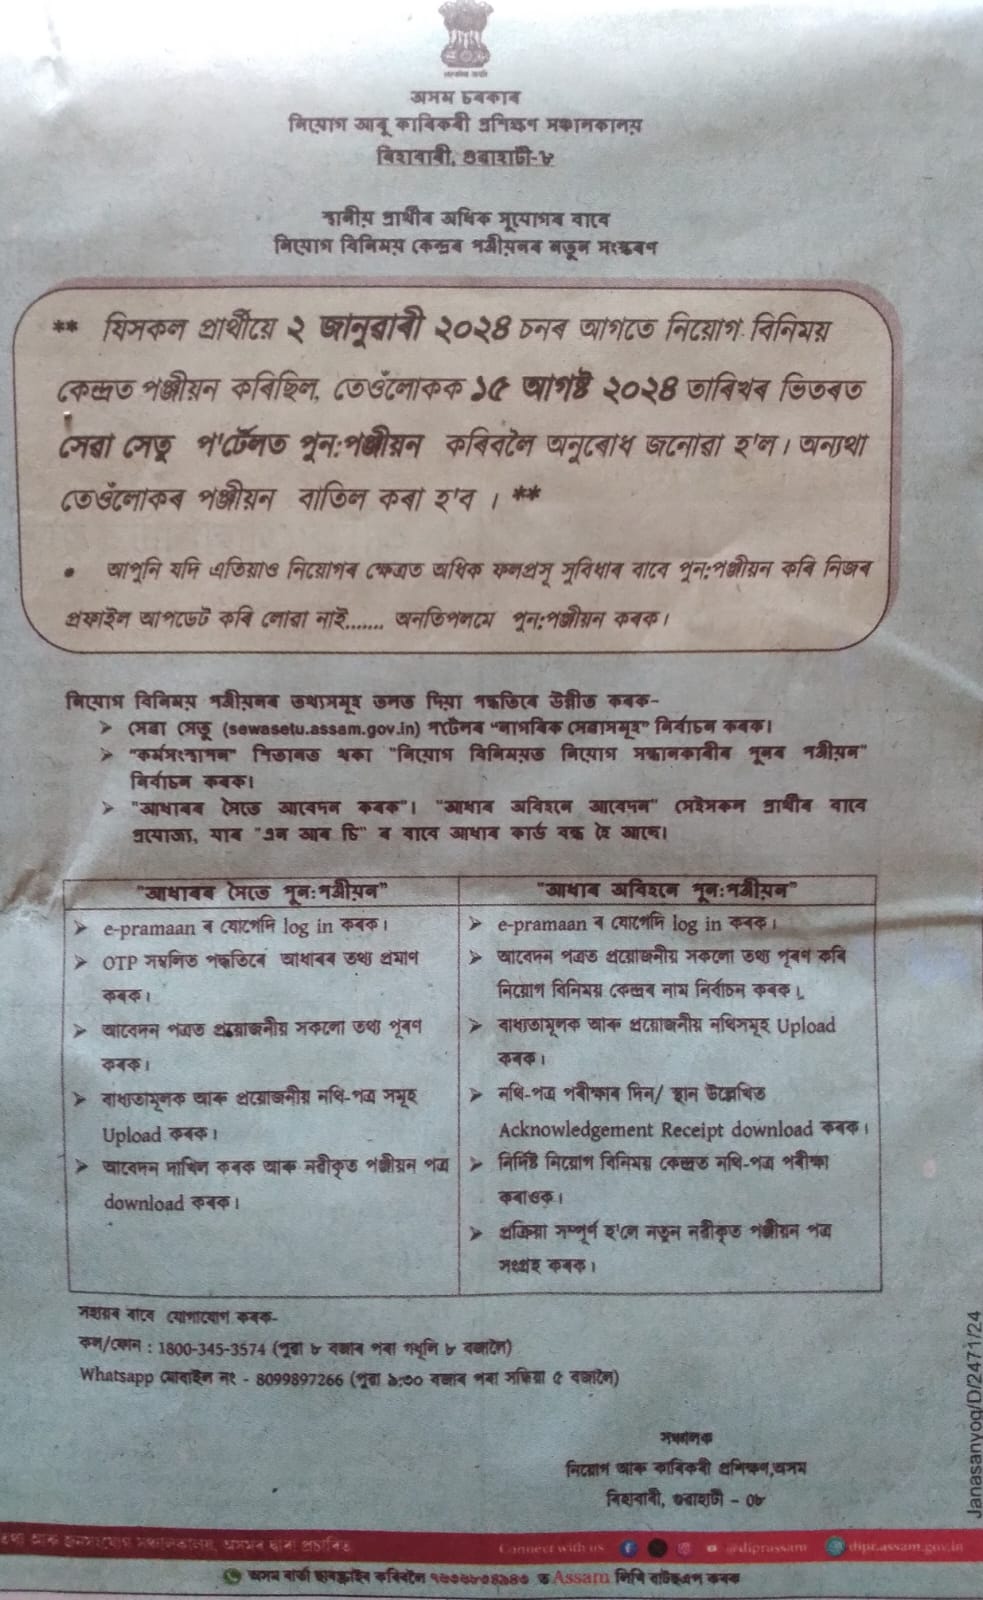 অসম চৰকাৰ
নিয়োগ আৰু কাৰিকৰী প্ৰশিক্ষণ সঞ্চালকালয়
ৰিহাবাৰী, গুৱাহাটী-৮
স্থানীয় প্ৰাৰ্থীৰ অধিক সুযোগৰ বাবে
নিয়োগ বিনিময় কেন্দ্ৰৰ পঞ্জীয়নৰ নতুন সংস্কৰণ
** যিসকল প্ৰাৰ্থীয়ে ২ জানুৱাৰী ২০২৪ চনৰ আগতে নিয়োগ বিনিময়
কেন্দ্ৰত পঞ্জীয়ন কৰিছিল, তেওঁলোকক ১৫ আগষ্ট ২০২৪ তাৰিখৰ ভিতৰত
সেৱা সেতু প'ৰ্টেলত পুন:পঞ্জীয়ন কৰিবলৈ অনুৰোধ জনোৱা হ'ল। অন্যথা
তেওঁলোকৰ পঞ্জীয়ন বাতিল কৰা হ'ব । **
• আপুনি যদি এতিয়াও নিয়োগৰ ক্ষেত্ৰত অধিক ফলপ্ৰসূ সুবিধাৰ বাবে পুন:পঞ্জীয়ন কৰি নিজৰ
প্ৰফাইল আপডেট কৰি লোৱা নাই....... অনতিপলমে পুন:পঞ্জীয়ন কৰক।
নিয়োগ বিনিময় পঞ্জীয়নৰ তথ্যসমূহ তলত দিয়া পদ্ধতিৰে উন্নীত কৰক-
➢ সেৱা সেতু (sewasetu.assam.gov.in) পৰ্টেলৰ "নাগৰিক সেৱাসমূহ" নিৰ্বাচন কৰক।
➢ "কৰ্মসংস্থাপন" শিতানত থকা "নিয়োগ বিনিময়ত নিয়োগ সন্ধানকাৰীৰ পুনৰ পঞ্জীয়ন"
নিৰ্বাচন কৰক।
➢ "আধাৰৰ সৈতে আবেদন কৰক"। "আধাৰ অবিহনে আবেদন" সেইসকল প্ৰাৰ্থীৰ বাবে
প্ৰযোজ্য, যাৰ "এন আৰ চি" ৰ বাবে আধাৰ কাৰ্ড বন্ধ হৈ আছে।
"আধাৰৰ সৈতে পুন:পঞ্জীয়ন"
➢ e-pramaan ৰ যোগেদি log in কৰক।
➢ OTP সম্বলিত পদ্ধতিৰে আধাৰৰ তথ্য প্ৰমাণ
কৰক।
➢ আবেদন পত্ৰত প্ৰয়োজনীয় সকলো তথ্য পূৰণ
কৰক।
➢ বাধ্যতামূলক আৰু প্ৰয়োজনীয় নথি-পত্ৰ সমূহ
Upload কৰক।
➢ আবেদন দাখিল কৰক আৰু নৱীকৃত পঞ্জীয়ন পত্ৰ
download কৰক।
"আধাৰ অবিহনে পুন:পঞ্জীয়ন"
➢ e-pramaan ৰ যোগেদি log in কৰক।
➢ আবেদন পত্ৰত প্ৰয়োজনীয় সকলো তথ্য পূৰণ কৰি
নিয়োগ বিনিময় কেন্দ্ৰৰ নাম নিৰ্বাচন কৰক।
➢ বাধ্যতামূলক আৰু প্ৰয়োজনীয় নথিসমূহ Upload
কৰক।
➢ নথি-পত্ৰ পৰীক্ষাৰ দিন/ স্থান উল্লেখিত
Acknowledgement Receipt download কৰক।
➢ নিৰ্দিষ্ট নিয়োগ বিনিময় কেন্দ্ৰত নথি-পত্ৰ পৰীক্ষা
কৰাওক।
➢ প্ৰক্ৰিয়া সম্পূৰ্ণ হ'লে নতুন নৱীকৃত পঞ্জীয়ন পত্ৰ
সংগ্ৰহ কৰক।
সহায়ৰ বাবে যোগাযোগ কৰক-
কল/ফোন : 1800-345-3574 (পুৱা ৮ বজাৰ পৰা গধূলি ৮ বজালৈ)
Whatsapp মোবাইল নং - 8099897266 (পুৱা ৯:৩০ বজাৰ পৰা সন্ধিয়া ৫ বজালৈ)
সঞ্চালক
নিয়োগ আৰু কাৰিকৰী প্ৰশিক্ষণ,অসম
ৰিহাবাৰী, গুৱাহাটী - ০৮
Janasanyog/D/2471/24
তথ্য আৰু জনসংযোগ সঞ্চালকালয়, অসমৰ দ্বাৰা প্ৰচাৰিত
Connect with us @diprassam dipr.assam.gov.in
অসম বাৰ্তা ছাবস্ক্ৰাইব কৰিবলৈ ত Assam লিখি হোৱাটছএপ কৰক